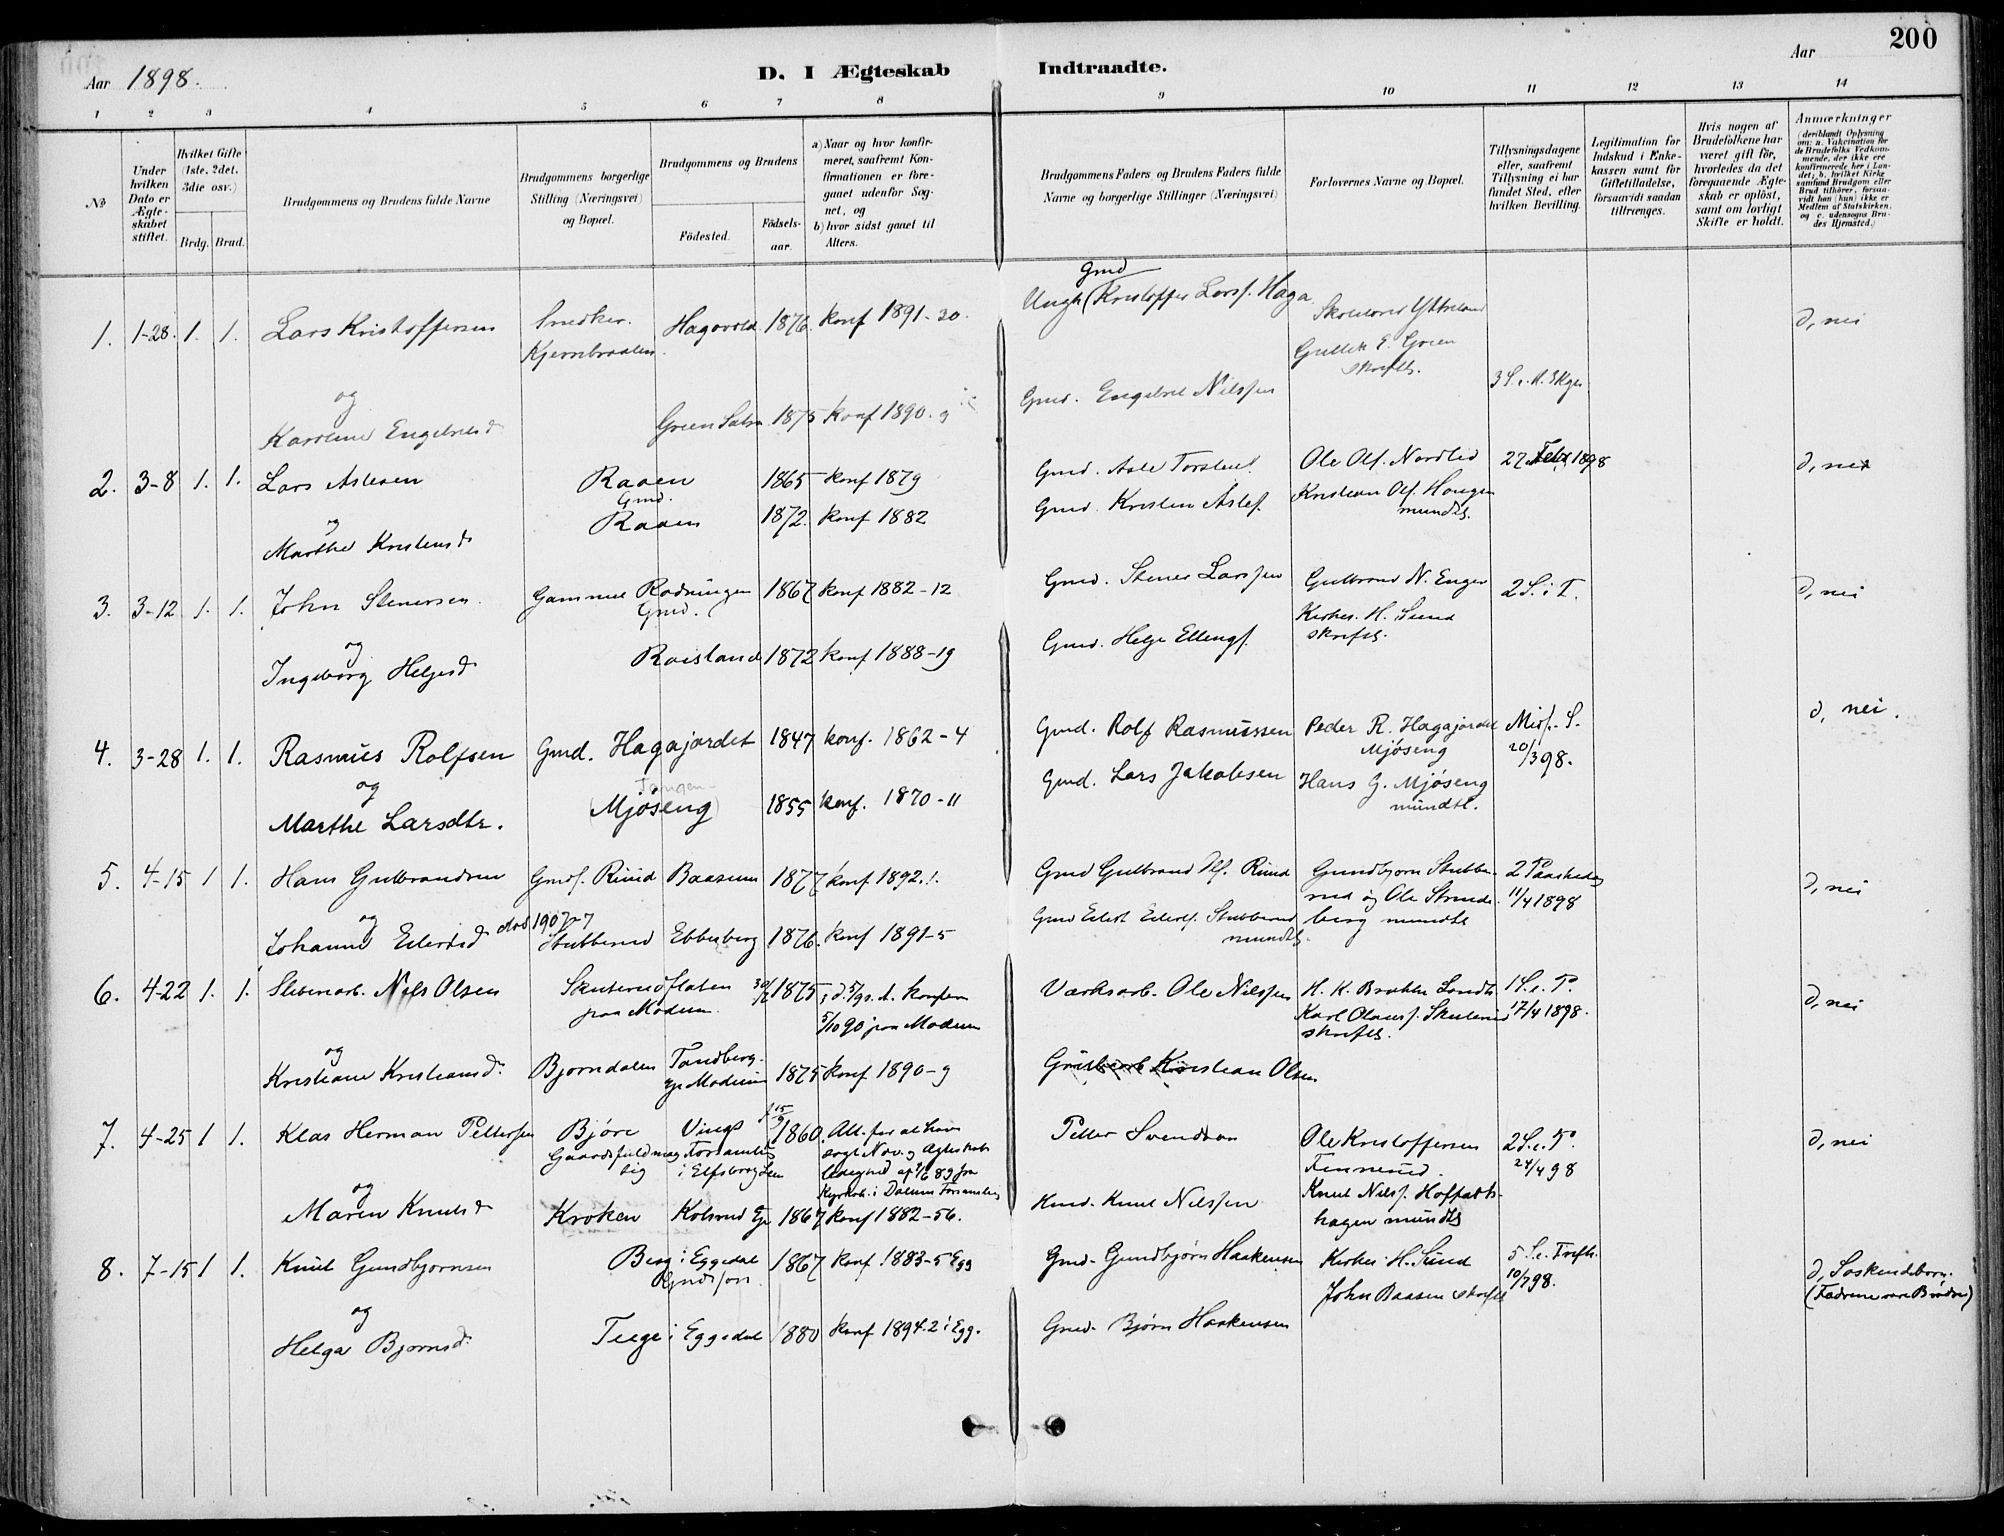 200
Aar 1898.
D. I Ægteskab Indtraadte.
Aar
1 2 3 4 5 6 7 8 9 10 11 12 13 14
No
Under hvilken Dato er Ægteskabet stiftet.
Hvilket Gifte (1ste, 2det, 3die osv.)
Brdg. Brud.
Brudgommens og Brudens fulde Navne
Brudgommens borgerlige Stilling (Næringsvei) og Bopæl.
Brudgommens og Brudens
Födested.
Födselsaar.
a) Naar og hvor konfirmeret, saafremt Konfirmationen er foregaaet udenfor Sognet, og
b) hvor sidst gaaet til Alters.
Brudgommens Faders og Brudens Faders fulde Navne og borgerlige Stillinger (Næringsvei)
Forlovernes Navne og Bopæl.
Tillysningsdagene eller, saafremt Tillysning ei har fundet Sted, efter hvilken Bevilling.
Legitimation for Indskud i Enkekassen samt for Giftetilladelse, forsaavidt saadan tiltrænges.
Hvis nogen af Brudefolkene har været gift för, hvorledes da det foregaaende Ægteskab er oplöst, samt om lovligt Skifte er holdt.
Anmærkninger (deriblandt Oplysning om: a. Vaccination for de Brudefolks Vedkommende, der ikke ere konfirmerede her i Landet, b. hvilket Kirkesamfund Brudgom eller Brud tilhörer, forsaavidt han (hun) ikke er Medlem af Statskirken, og c. udensogns Brudes Hjemsted.)
Gmd
1. 1-28. 1. 1. Lars Kristoffersen Snedker. Hagavold 1876. konf 1891-20. Ungk (Kristoffer Larsf. Haga d, nei
Kjernbraaten Gullik E. Green
skriftl.
og 3 S. e. H. 3 Kgr
Karoline Engebretsd Green 1875 konf 1890-9 Gmd. Engebret Nilssen
2. 3-8 1. 1. Lars Aslesen Raaen 1865 konf 1879 Gmd. Asle Torstens. Ole Olf. Nordlid 27 Feb 1898 d, nei
Gmd.
og Raaen 1872. konf 1882 Gmd. Kristen Aslef. Kristian Olf. Haugen
mundtl.
Marthe Kristensd
3. 3-12 1. 1. John Stenersen. Gammel Rodningen 1867 konf 1882-12 Gmd. Stener Larssen Gulbrand N. Enger 2 S. i F. d, nei
Gmd. Kirkes. H. Sund
skriftl.
og Roisland 1872 konf 1888-19 Gmd. Helge Ellingf.
Ingeborg Helgesd
4. 3-28 1. 1. Rasmus Rolfsen Gmd. Hagajordet 1847 konf. 1862-4 Gmd. Rolf Rasmussen Peder R. Hagajordet Midf.-S. d, nei.
Mjöseng 20/3 98.
og Tangen
(Mjöseng) 1855 konf. 1870-11 Gmd. Lars Jakobsen Hans G. Mjöseng
mundtl.
Marthe Larsdtr.
5. 4-15 1 1. Hans Gulbrandsen Gmdf. Ruud Baasum 1877 konf 1892.1. Gmd Gulbrand Olf. Ruud Gundbjorn Stubberud og Ole Strandeberg mundtl 2 Paaskedag 11/4 1898 d, nei
og död 1907-7
Johanne Eilertsd Stubberud Ebbesberg 1876. konf 1891-5 Gmd Eilert Eilertf. Stubberud
mundtl.
6. 4-22 1. 1. Sliberiarb. Nils Olsen Skuterudflaten 30/7 1875 Værksarb. Ole Nilssen H. K. Bratten 1 S. e. P. d, nei
paa Modum. 5/10 90 paa Modum Karl Olausf. Skuterud 17/4 1898.
skriftl.
og
Kristiane Kristiansd. Bjorndalen Tandberg- 1875 konf 1890-9 Kristian Olsen
eje Modum
7. 4-25 1 1. Klas Herman Pettersen Björe Vings f 15/9 1860. Att. for at have Petter Svendson Ole Kristoffersen 2 S. e. P. d, nei
Gaardsfuldmægtig Forsamling i Elfsborg Len Finnerud. 24/4 98
og Kyrkob. i Dalums Forsamling Knut Nilsf. Hoffarthagen mundtl
Maren Knutsd Kroken Kolsrud Eje 1867 konf 1882-56. Hmd. Knut Nilssen
8. 7-15 1 1. Knut Gundbjornsen Berg i Eggedal 1867 konf 1883-5 Egg Gmd. Gundbjörn Haakensen Kirkes. H. Sund 5 S. e. Trefh. d, Söskendebørn.
10/7 98. (Fædrene vare Brødre)
John Baasen skriftl
og
Helga Bjornsd. Teege i Eggedal 1880 konf 1894-2 i Egg. Gmd. Björn Haakensen